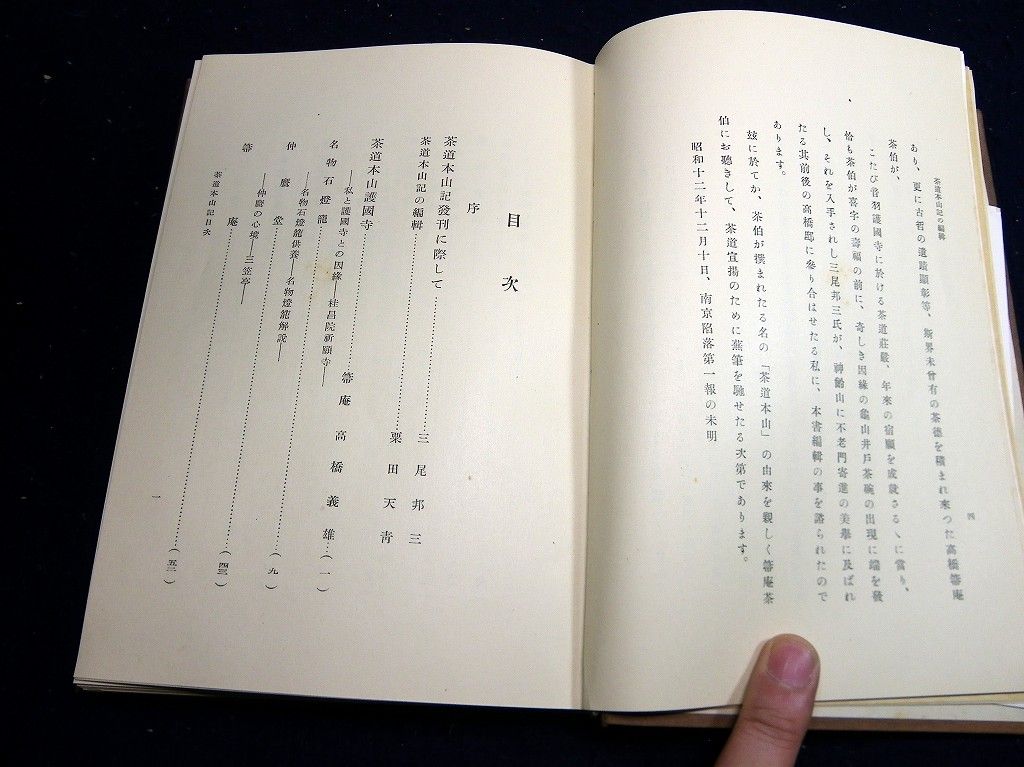 茶道本山記の編輯
四
あり、更に古哲の遺蹟顯彰等、斯界未曾有の茶德を積まれ來つた高橋箒庵
茶伯が、
こたび音羽護國寺に於ける茶道莊嚴、年來の宿願を成就さるゝに當り、
恰も茶伯が喜字の壽福の前に、奇しき因緣の龜山井戶茶碗の出現に端を發
し、それを入手されし三尾邦三氏が、神齡山に不老門寄進の美擧に及ばれ
たる其前後の高橋邸に參り合はせたる私に、本書編輯の事を諮られたので
あります。
玆に於てか、茶伯が撰まれたる名の「茶道本山」の由來を親しく箒庵茶
伯にお聽きして、茶道宣揚のために蕪筆を馳せたる次第であります。
昭和十二年十二月十日、南京陷落第一報の未明
目次
序
茶道本山記發刊に際して……三尾邦三
茶道本山記の編輯……栗田天靑
茶道本山護國寺……箒庵 高橋義雄…(一)
―私と護國寺との因緣―桂昌院祈願寺―
名物石燈籠……(九)
―名物石燈籠供養―名物燈籠解說―
仲麿堂……(四三)
―仲麿の心境―三笠亭―
箒庵……(五三)
茶道本山記目次
一